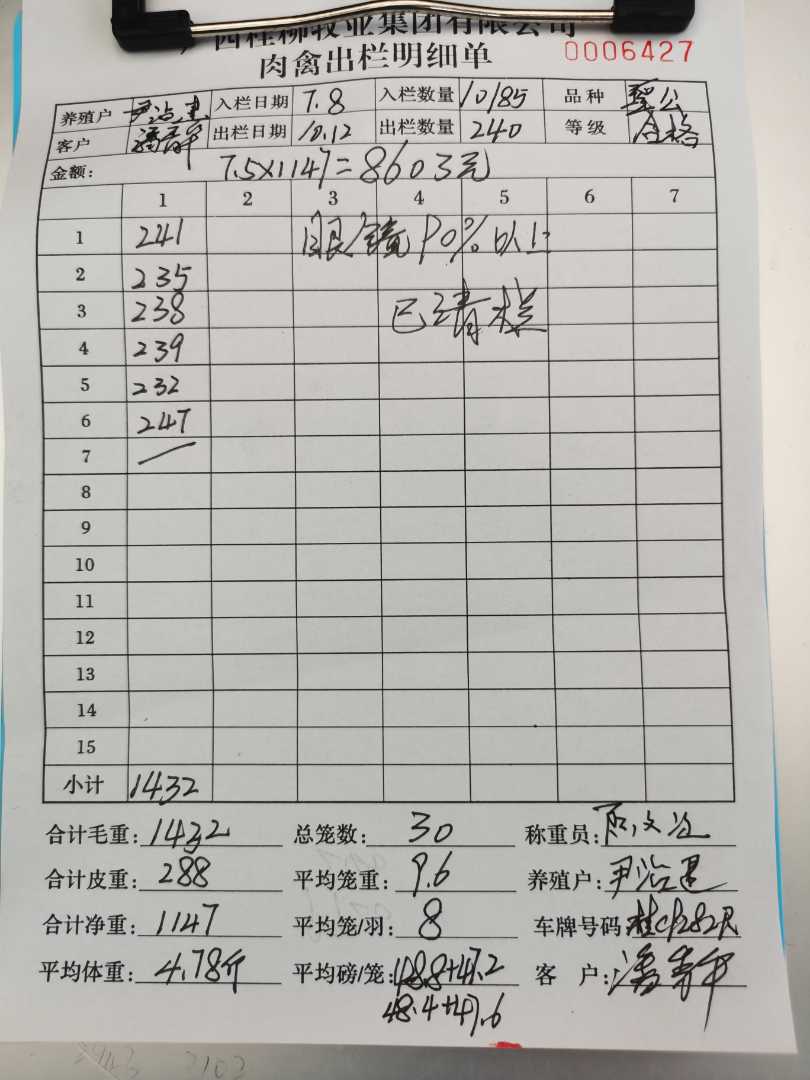 西桂柳牧业集团有限公司
肉禽出栏明细单 0006427
养殖户 尹治建 入栏日期 7.8 入栏数量 10185 品种
客户 潘青年 出栏日期 10.12 出栏数量 240 等级 合格
金额: 7.5×1147=8603元
1 2 3 4 5 6 7
1 241 眼镜90%以上
2 235
3 238 已清栏
4 239
5 232
6 247
7 /
8
9
10
11
12
13
14
15
小计 1432
合计毛重: 1432 总笼数: 30 称重员:
合计皮重: 288 平均笼重: 9.6 养殖户: 尹治建
合计净重: 1147 平均笼/羽: 8 车牌号码:
平均体重: 4.78斤 平均磅/笼: 48.8+47.2 客 户: 潘青年
48.4+47.6